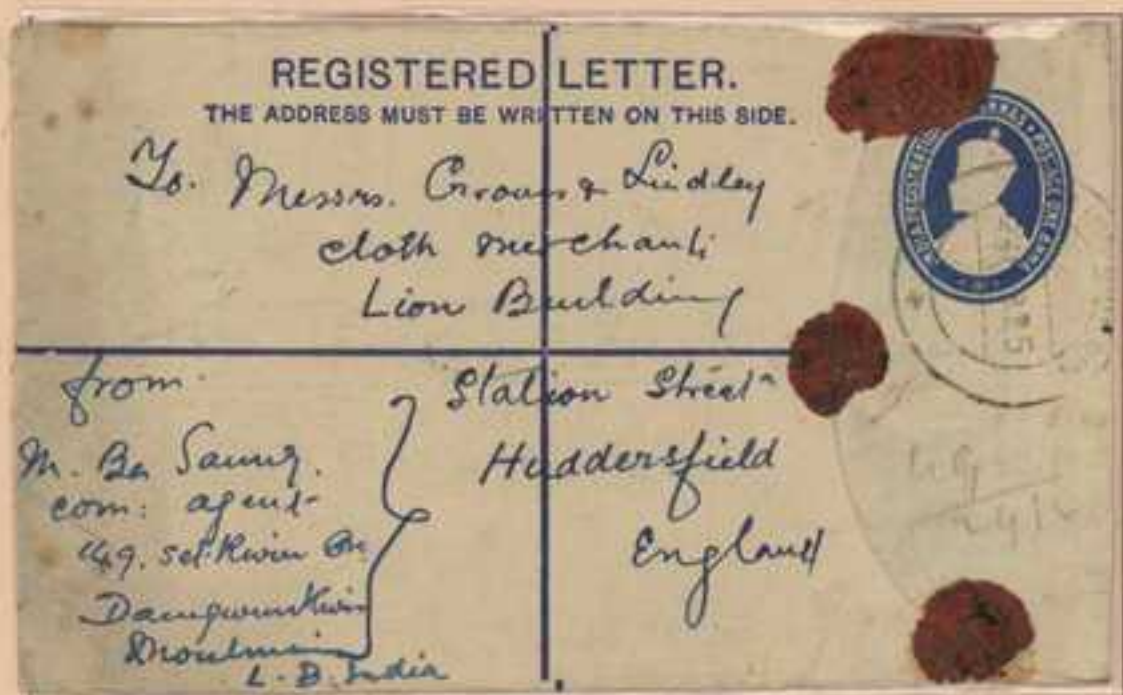 REGISTERED LETTER.
THE ADDRESS MUST BE WRITTEN ON THIS SIDE.
To. Messrs. Groves & Lindley
cloth merchants
Lion Building
Station Street
Huddersfield
England
from
M. Ba Saung.
com: agent
149.
Moulmein
L. B. India
POSTAGE ONE ANNA